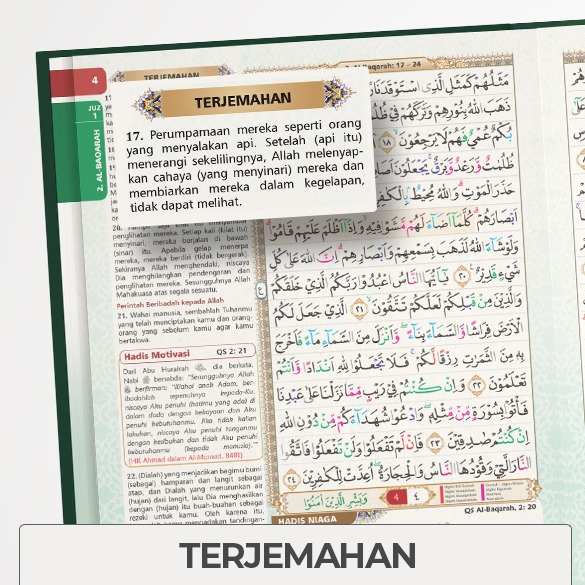 4
JUZ
1
2. AL-BAQARAH
TERJEMAHAN
2. Al-Baqarah: 17 - 24
TERJEMAHAN
17. Perumpamaan mereka seperti orang
yang menyalakan api. Setelah (api itu)
menerangi sekelilingnya, Allah melenyap-
kan cahaya (yang menyinari) mereka dan
membiarkan mereka dalam kegelapan,
tidak dapat melihat.
penglihatan mereka. Setiap kali (kilat itu)
menyinari, mereka berjalan di bawah
(sinar) itu. Apabila gelap menerpa
mereka, mereka berdiri (tidak bergerak).
Sekiranya Allah menghendaki, niscaya
Dia menghilangkan pendengaran dan
penglihatan mereka. Sesungguhnya Allah
Mahakuasa atas segala sesuatu.
Perintah Beribadah kepada Allah
21. Wahai manusia, sembahlah Tuhanmu
yang telah menciptakan kamu dan orang-
orang yang sebelum kamu agar kamu
bertakwa.
Hadis Motivasi QS 2: 21
Dari Abu Hurairah, dia berkata,
Nabi bersabda: "Sesungguhnya Allah
berfirman: "Wahai anak Adam, ber-
ibadahlah sepenuhnya kepada-Ku,
niscaya Aku penuhi (hatimu yang ada) di
dalam dada dengan kekayaan dan Aku
penuhi kebutuhanmu. Jika tidak kalian
lakukan, niscaya Aku penuhi tanganmu
dengan kesibukan dan tidak Aku penuhi
kebutuhanmu (kepada manusia)."
(HR Ahmad dalam Al-Musnad, 8481)
22. (Dialah) yang menjadikan bagimu bumi
(sebagai) hamparan dan langit sebagai
atap, dan Dialah yang menurunkan air
(hujan) dari langit, lalu Dia menghasilkan
dengan (hujan) itu buah-buahan sebagai
rezeki untuk kamu. Oleh karena itu,
مَثَلُهُمْ كَمَثَلِ الَّذِى اسْتَوْقَدَ
ذَهَبَ اللّٰهُ بِنُوْرِهِمْ وَتَرَكَهُمْ فِيْ
بُكْمٌ عُمْيٌ فَهُمْ لَا يَرْجِعُوْنَ ۙ ١٨
ظُلُمٰتٌ وَّرَعْدٌ وَّبَرْقٌۚ يَجْعَلُوْنَ
حَذَرَ الْمَوْتِۗ وَاللّٰهُ مُحِيْطٌۢ
اَبْصَارَهُمْ ۗ كُلَّمَآ اَضَاۤءَ لَهُمْ مَّشَوْا فِيْهِۙ وَاِذَآ اَظْلَمَ عَلَيْهِمْ قَامُوْاۗ
وَلَوْ شَاۤءَ اللّٰهُ لَذَهَبَ بِسَمْعِهِمْ وَاَبْصَارِهِمْ ۗ اِنَّ اللّٰهَ عَلٰى كُلِّ
شَيْءٍ قَدِيْرٌ ࣖ ٢٠ يٰٓاَيُّهَا النَّاسُ اعْبُدُوْا رَبَّكُمُ الَّذِيْ خَلَقَكُمْ
وَالَّذِيْنَ مِنْ قَبْلِكُمْ لَعَلَّكُمْ تَتَّقُوْنَۙ ٢١ الَّذِيْ جَعَلَ لَكُمُ
الْاَرْضَ فِرَاشًا وَّالسَّمَاۤءَ بِنَاۤءً ۖوَّاَنْزَلَ مِنَ السَّمَاۤءِ مَاۤءً فَاَخْرَجَ
بِهٖ مِنَ الثَّمَرٰتِ رِزْقًا لَّكُمْ ۚ فَلَا تَجْعَلُوْا لِلّٰهِ اَنْدَادًا وَّاَنْتُمْ
تَعْلَمُوْنَ ٢٢ وَاِنْ كُنْتُمْ فِيْ رَيْبٍ مِّمَّا نَزَّلْنَا عَلٰى عَبْدِنَا
فَأْتُوْا بِسُوْرَةٍ مِّنْ مِّثْلِهٖ ۖ وَادْعُوْا شُهَدَاۤءَكُمْ مِّنْ دُوْنِ اللّٰهِ
اِنْ كُنْتُمْ صٰدِقِيْنَ ٢٣ فَاِنْ لَّمْ تَفْعَلُوْا وَلَنْ تَفْعَلُوْا فَاتَّقُوا
النَّارَ الَّتِيْ وَقُوْدُهَا النَّاسُ وَالْحِجَارَةُ ۖ اُعِدَّتْ لِلْكٰفِرِيْنَ ٢٤
وَبَشِّرِ الَّذِيْنَ اٰمَنُوْا
4 ٤
HADIS NIAGA
QS Al-Baqarah, 2: 20
TERJEMAHAN